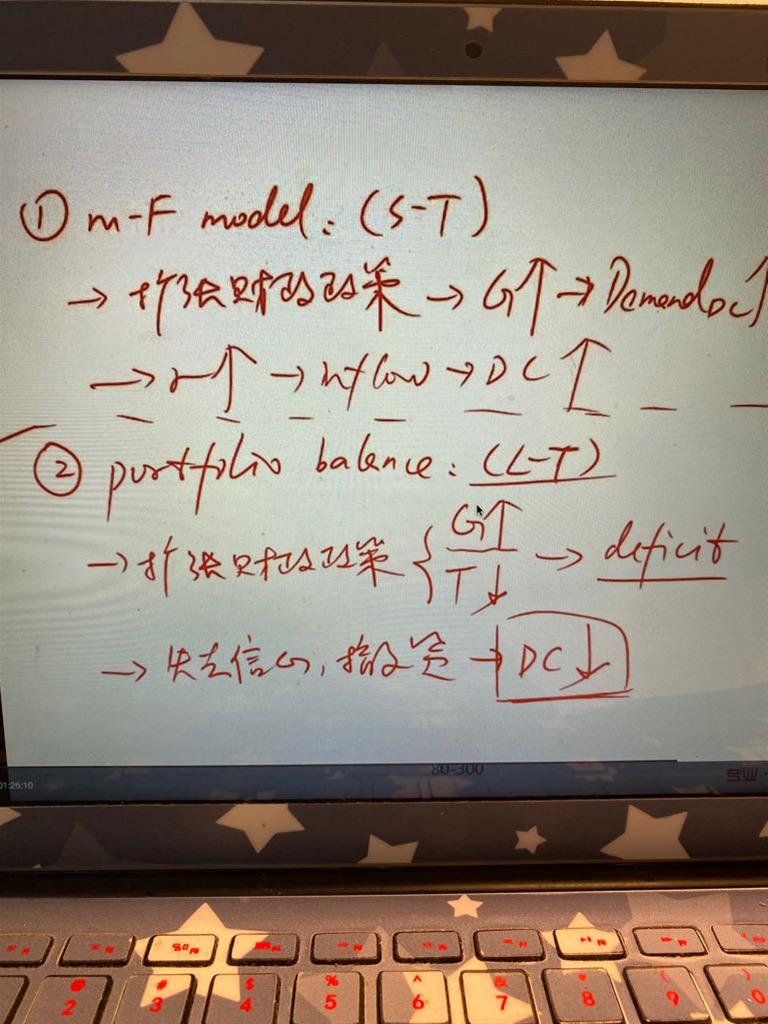 ① m-F model: (S-T)
→ 扩张财政政策 → G↑ → Demand DC↑
→ r↑ → inflow → DC↑
② portfolio balance: (L-T)
→ 扩张财政政策 { G↑ T↓ → deficit
→ 失去信心, 撤资 → DC↓
80-300
01:26:10
@ # $ % ^ & * ( )
2 3 4 5 6 7 8 9 0